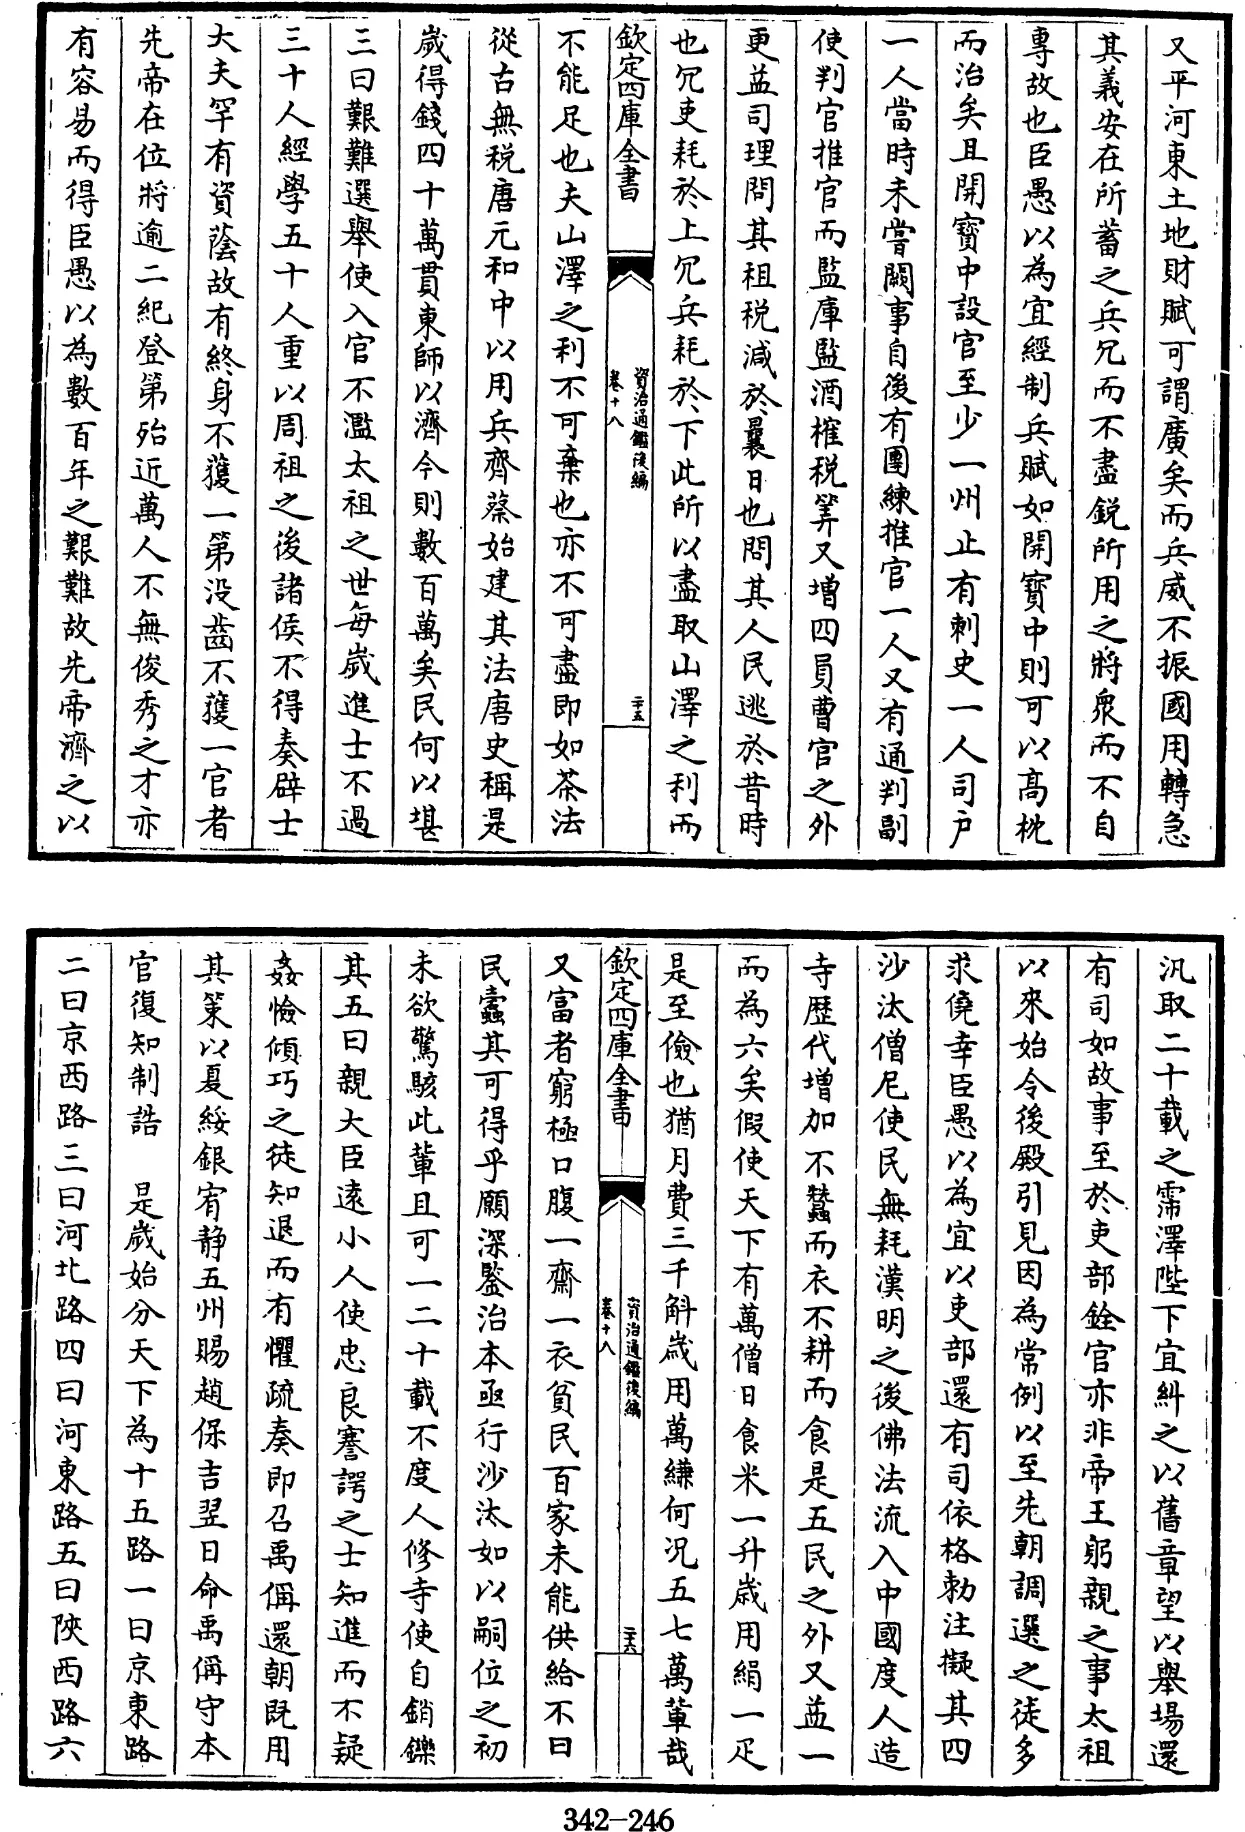 又平河東土地財賦可謂廣矣而兵威不振國用轉急
其義安在所蓄之兵冗而不盡銳所用之將衆而不自
專故也臣愚以為宜經制兵賦如開寳中則可以髙枕
而治矣且開寳中設官至少一州止有刺史一人司户
一人當時未嘗闕事自後有團練推官一人又有通判副
使判官推官而監庫監酒榷税筭又增四員曹官之外
更益司理問其租税減於曩日也問其人民逃於昔時
也冗吏耗於上冗兵耗於下此所以盡取山澤之利而
欽定四庫全書
資治通鑑後編
卷十八
二十五
不能足也夫山澤之利不可棄也亦不可盡即如茶法
從古無税唐元和中以用兵齊蔡始建其法唐史稱是
嵗得錢四十萬貫東師以濟今則數百萬矣民何以堪
三曰艱難選舉使入官不濫太祖之世每嵗進士不過
三十人經學五十人重以周祖之後諸侯不得奏辟士
大夫罕有資蔭故有終身不獲一第没齒不獲一官者
先帝在位將逾二紀登第殆近萬人不無俊秀之才亦
有容易而得臣愚以為數百年之艱難故先帝濟之以
汎取二十載之霈澤陛下宜糾之以舊章望以舉場還
有司如故事至於吏部銓官亦非帝王躬親之事太祖
以來始令後殿引見因為常例以至先朝調選之徒多
求僥幸臣愚以為宜以吏部還有司依格勅注擬其四
沙汰僧尼使民無耗漢明之後佛法流入中國度人造
寺歴代增加不蠶而衣不耕而食是五民之外又益一
而為六矣假使天下有萬僧日食米一升嵗用絹一疋
是至儉也猶月費三千斛嵗用萬縑何况五七萬輩哉
欽定四庫全書
資治通鑑後編
卷十八
二十六
又富者窮極口腹一齋一衣貧民百家未能供給不曰
民蠹其可得乎願深鑒治本亟行沙汰如以嗣位之初
未欲驚駭此輩且可一二十載不度人修寺使自銷鑠
其五曰親大臣逺小人使忠良謇諤之士知進而不疑
姦憸傾巧之徒知退而有懼疏奏即召禹偁還朝既用
其策以夏綏銀宥静五州賜趙保吉翌日命禹偁守本
官復知制誥　是嵗始分天下為十五路一曰京東路
二曰京西路三曰河北路四曰河東路五曰陜西路六
342-246